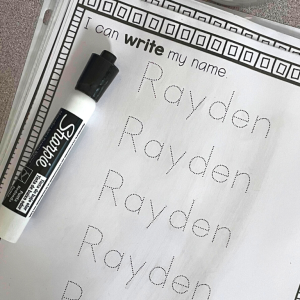 I can write my name
Rayden
Rayden
Rayden
Rayden
Sharpie